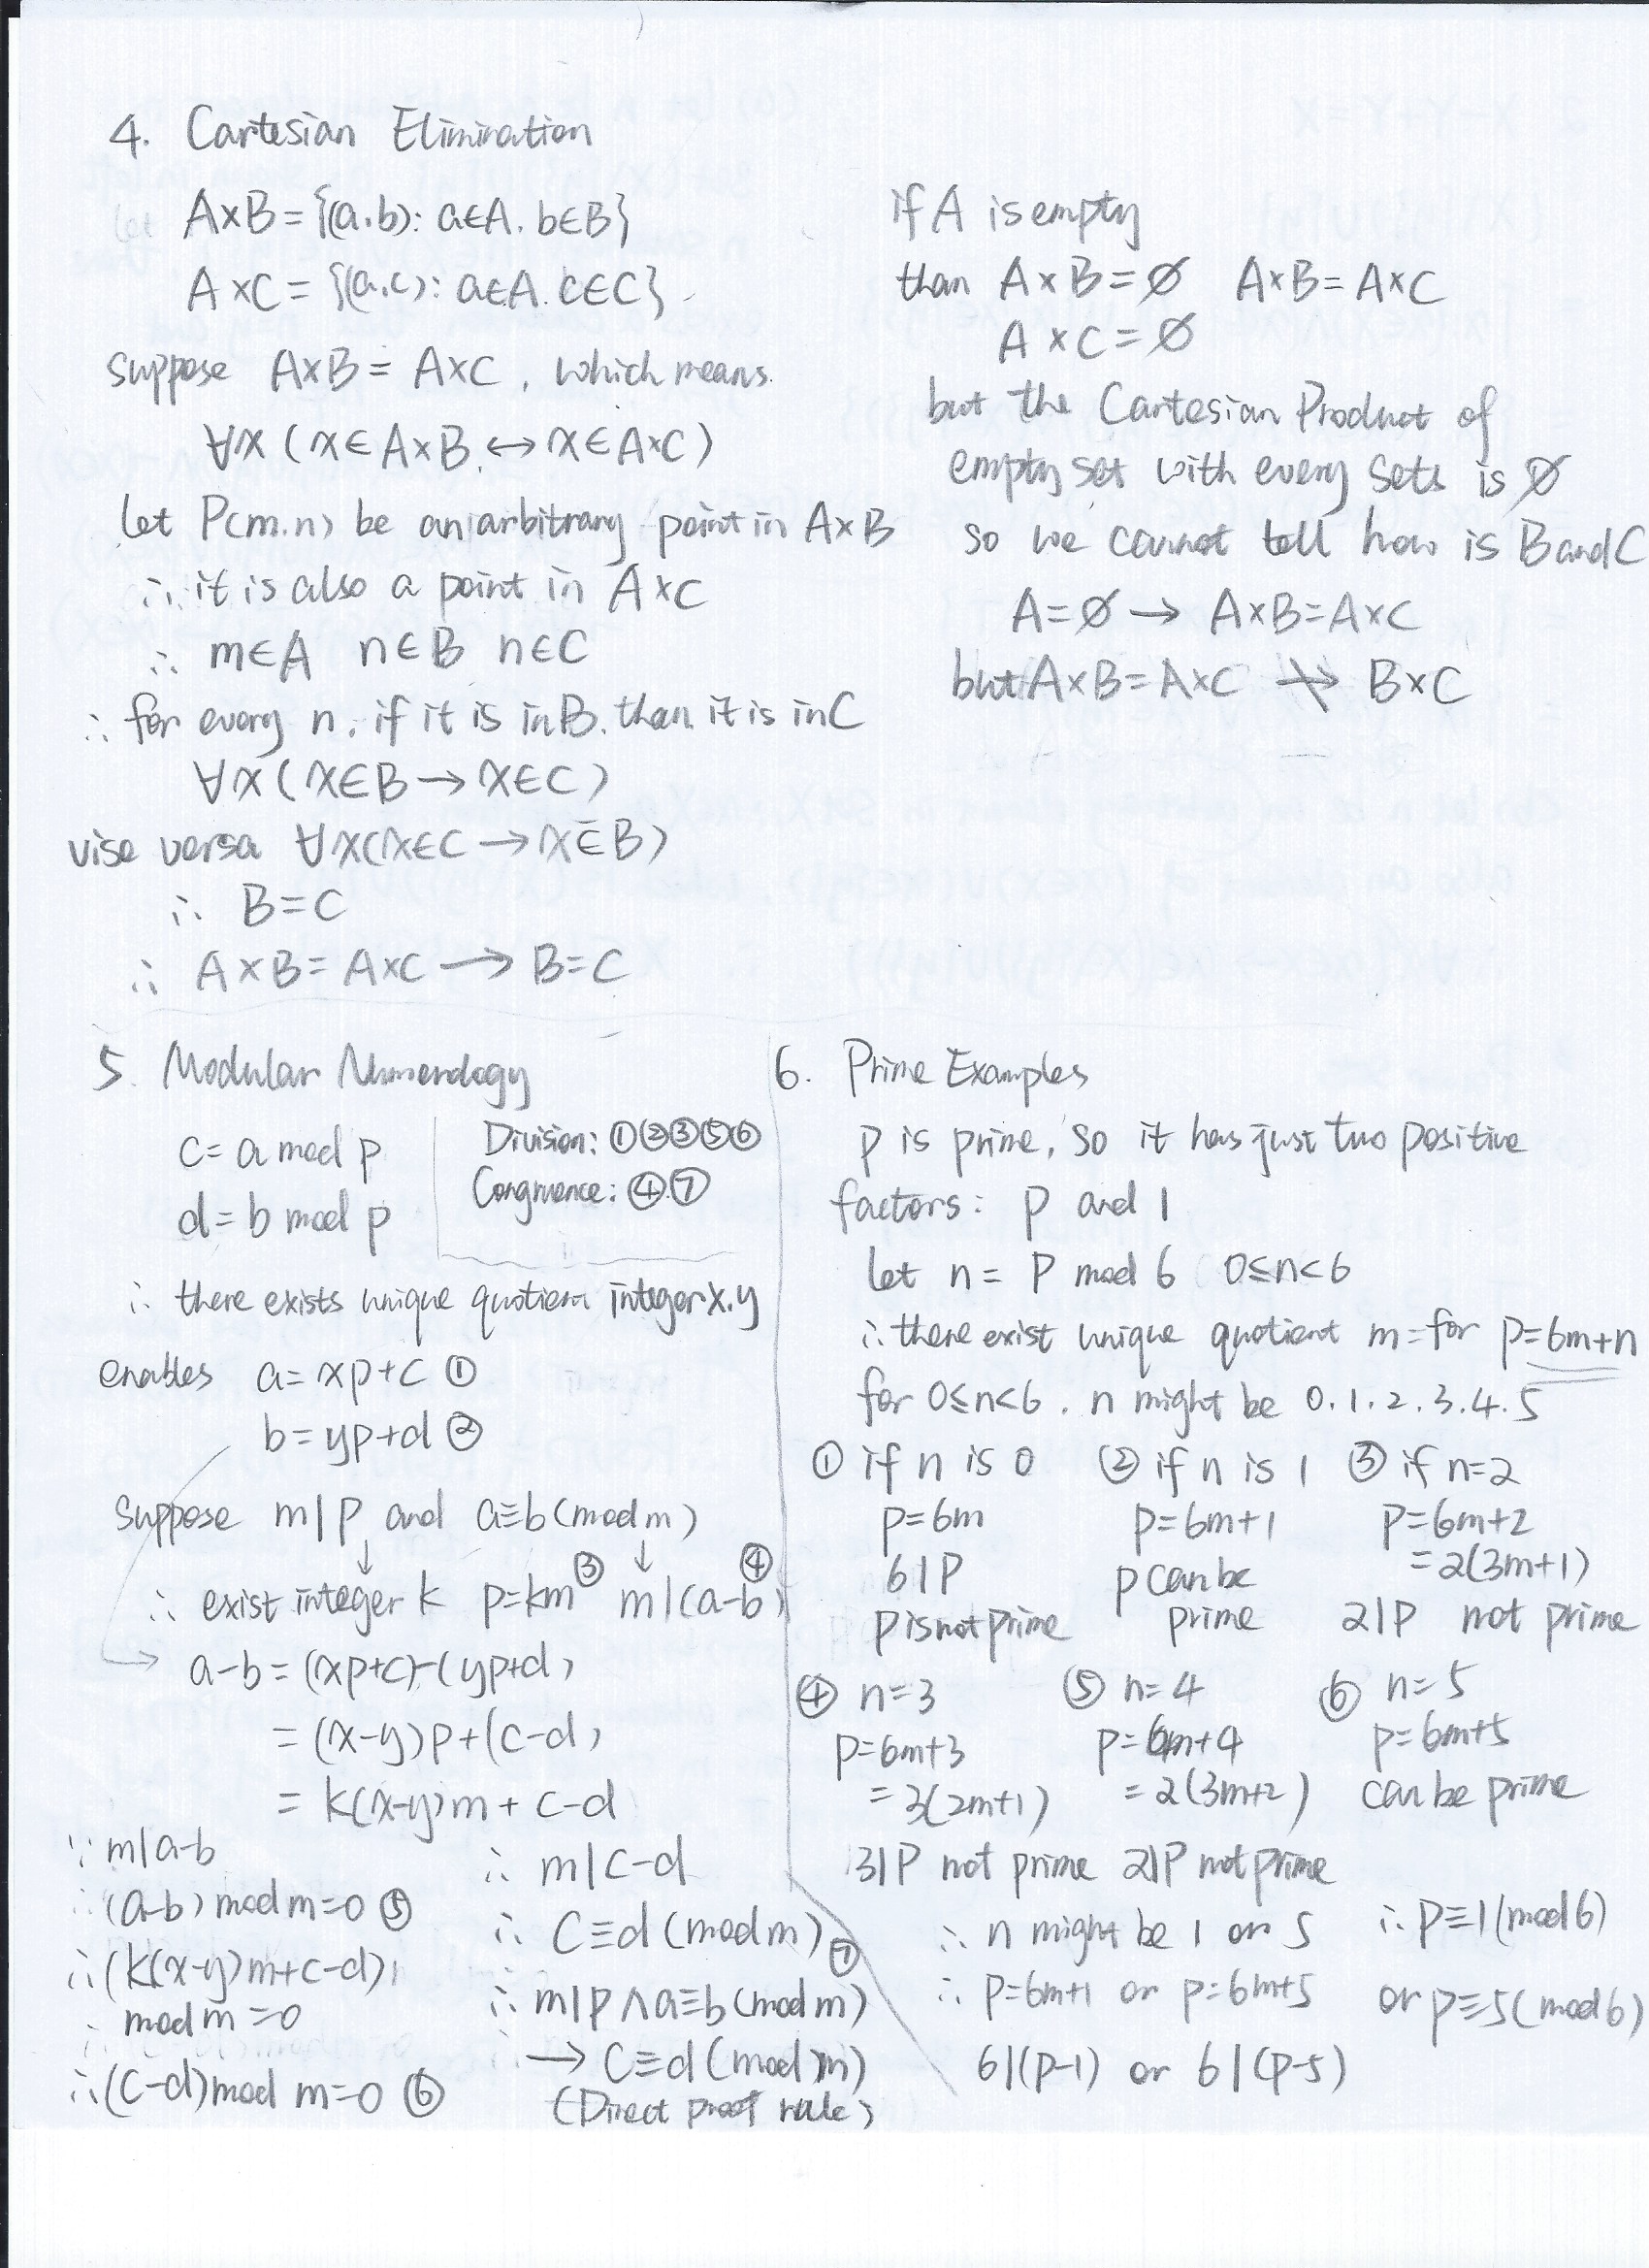 4. Cartesian Elimination
A×B = {(a.b): a∈A. b∈B}
A×C = {(a.c): a∈A. c∈C}
suppose A×B = A×C, which means.
∀x (x∈A×B ↔ x∈A×C)
let P(m.n) be an arbitrary point in A×B
∴ it is also a point in A×C
∴ m∈A n∈B n∈C
∴ for every n, if it is in B. than it is in C
∀x (x∈B → x∈C)
vise versa ∀x(x∈C → x∈B)
∴ B=C
∴ A×B = A×C → B=C
if A is empty
than A×B=∅ A×B=A×C
A×C=∅
but the Cartesian Product of
empty set with every sets is ∅
so we cannot tell how is B and C
A=∅ → A×B=A×C
but A×B=A×C ↛ B×C
5. Modular Numerology
c= a mod p
d= b mod p
Division: ①②③⑤⑥
Congruence: ④⑦
∴ there exists unique quotient integer x.y
enables a= xp+c ①
b= yp+d ②
suppose m|p and a≡b (mod m)
∴ exist integer k p=km ③ m|(a-b) ④
a-b= (xp+c)-(yp+d)
= (x-y)p+(c-d)
= k(x-y)m + c-d
∵ m|a-b
∴ (a-b) mod m=0 ⑤
∴ (k(x-y)m+c-d)
mod m=0
∴ (c-d) mod m=0 ⑥
∴ m|c-d
∴ c≡d (mod m) ⑦
∴ m|p ∧ a≡b (mod m)
→ c≡d (mod m)
(Direct proof rule)
6. Prime Examples
p is prime, so it has just two positive
factors: p and 1
let n= p mod 6 0≤n<6
∴ there exist unique quotient m= for p=6m+n
for 0≤n<6. n might be 0.1.2.3.4.5
① if n is 0 ② if n is 1 ③ if n=2
p=6m p=6m+1 p=6m+2
6|p p can be =2(3m+1)
p is not prime prime 2|p not prime
④ n=3 ⑤ n=4 ⑥ n=5
p=6m+3 p=6m+4 p=6m+5
=3(2m+1) =2(3m+2) can be prime
3|p not prime 2|p not prime
∴ n might be 1 or 5 ∴ p≡1(mod 6)
∴ p=6m+1 or p=6m+5 or p≡5(mod 6)
6|(p-1) or 6|(p-5)